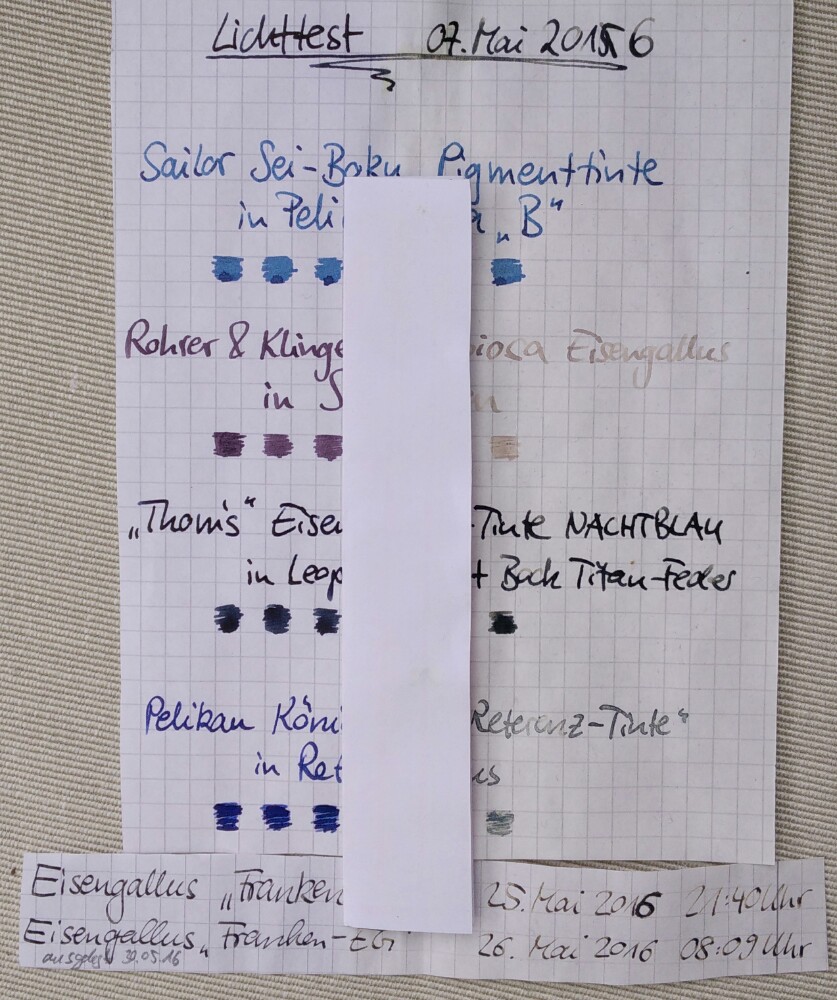 Lichttest 07. Mai 2016
Sailor Sei-Boku Pigmenttinte
in Peli „B“
Rohrer & Klinge iosa Eisengallus
in S n
„Thoms“ Eisen -Tinte NACHTBLAU
in Leop + Bock Titan-Feder
Pelikan Köni Referenz-Tinte“
in Ret us
Eisengallus „Franken 25. Mai 2016 21:40 Uhr
Eisengallus „Franken-EG“ 26. Mai 2016 08:09 Uhr
ausgelegt 30.05.16